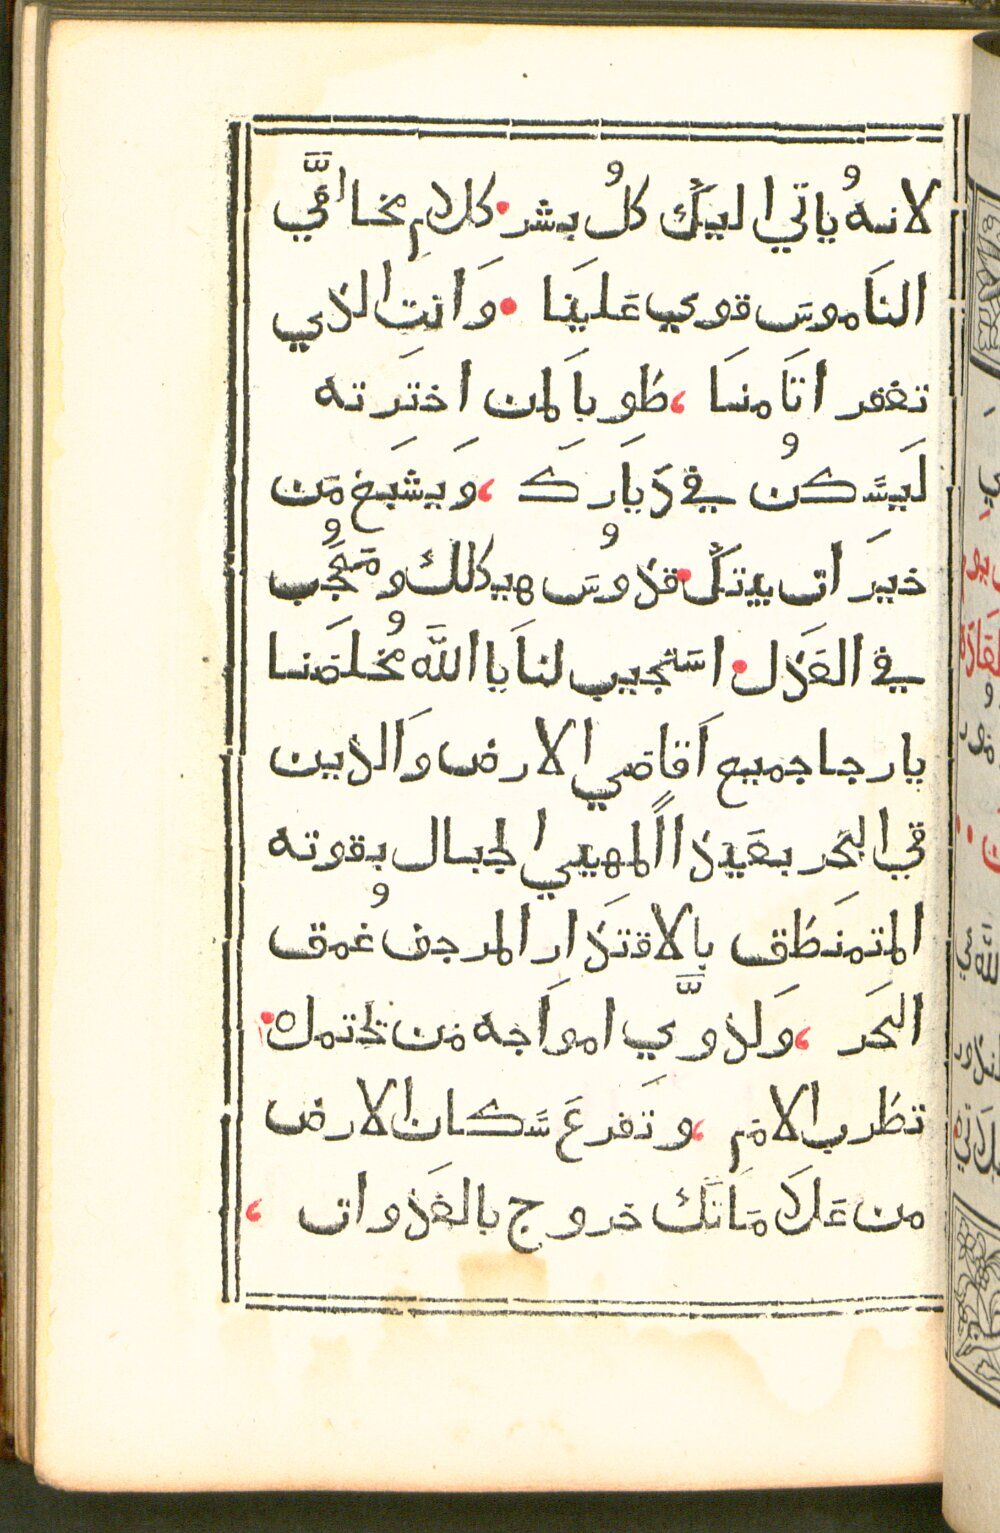 لانهُ ياتي اليكَ كلُ بشر· كلام مخا امّي
النَاموسَ قوي عَلينَا · وَانتِ الذي
تغفر اتَامنَا ، طوباَ لمن اختَرته
لَيسَكنُ في دَيارَكَ ، وَيشبَع مَن
خيرَ ات بيتكَ· قدوُسَ هيكلك ومَعجُب
في العَدل· استجيب لناَ يا اللَّه مُخلصَنا
يا رجا جميع اَقاصي الارض وَالذين
في البَحر بعَيدًا المهيي الجبال بقوته
المتمنَطق بالاقتَدار المرجف عُمق
البَحر ، وَلدوَّي امواَجه مَن يحتمله·
تطرب الامَم ، وتَفرعَ سَكان الارض
من عَلاَمَاتَك خروج بالغَدوات ،